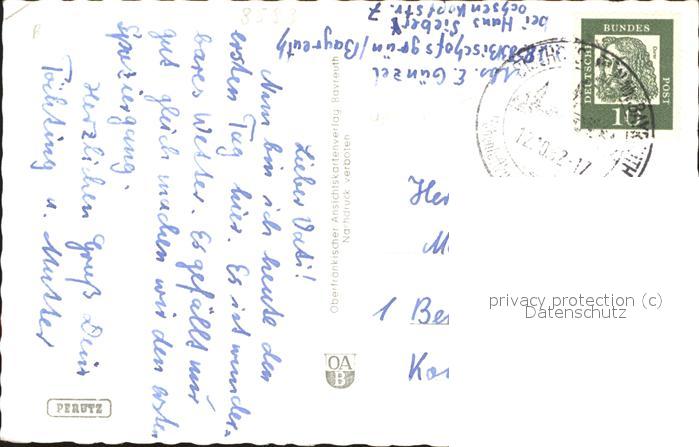 8553
Abs. E. Günzel
Bischofsgrün/Bayreuth
bei Hans Sieber
Ochsenkopfstr. 7
Lieber Vati!
Nun bin ich heute den
ersten Tag hier. Es ist wunder-
bares Wetter. Es gefällt mir
gut gleich machen wir den ersten
Spaziergang.
Herzlichen Gruß Dein
Töchting u. Mutter
Oberfränkischer Ansichtskartenverlag Bayreuth
Nachdruck verboten
OA
B
PERUTZ
DEUTSCHE
BUNDES
POST
10
12.10.62-17
BAYREUTH
Her
M
1 Be
Ko
privacy protection (c)
Datenschutz